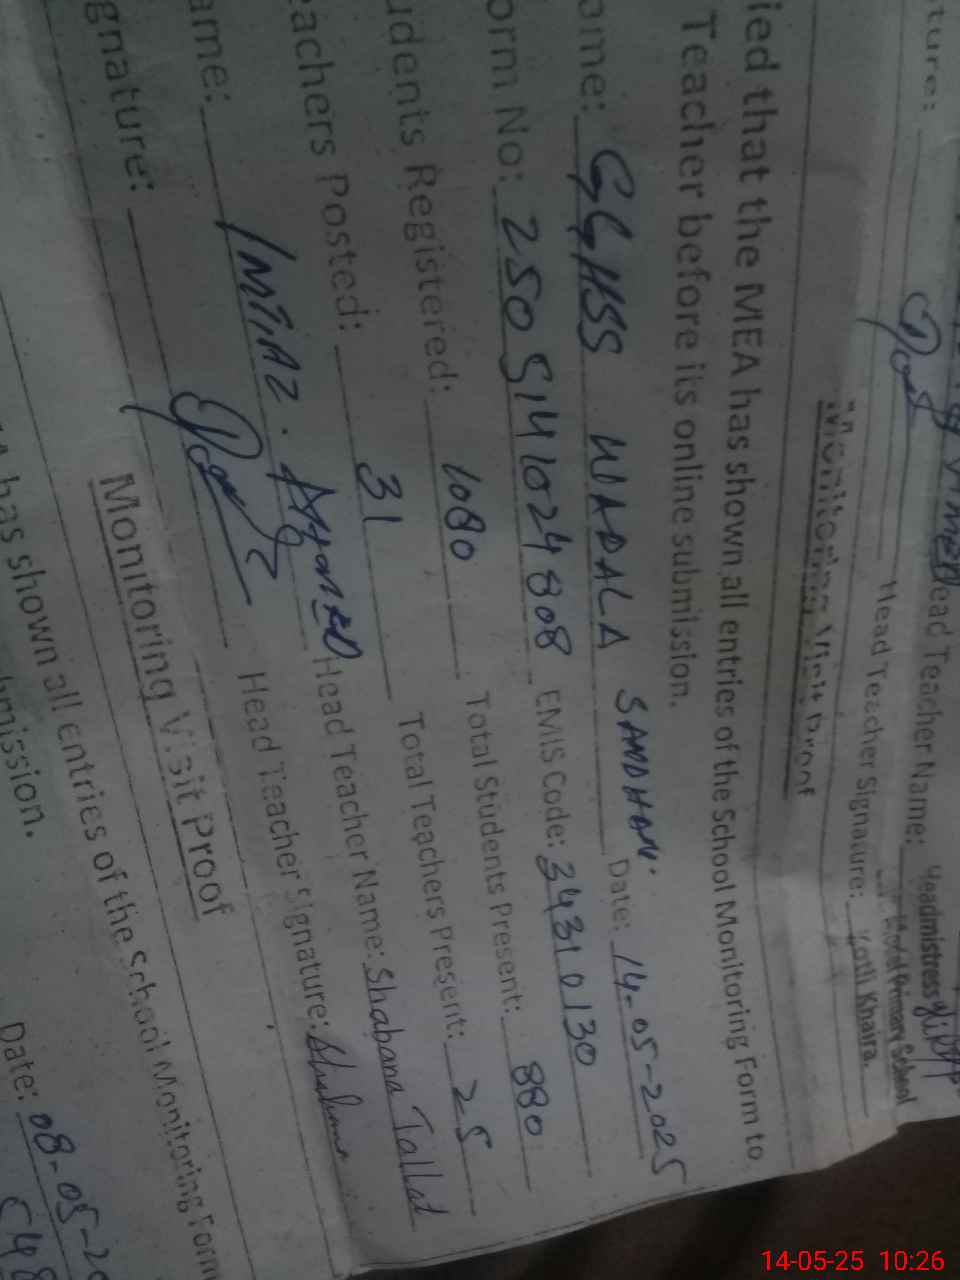 Head Teacher Name: Headmistress
Head Teacher Signature: Primary School
Kotli Khaira.
Monitoring Visit Proof
ied that the MEA has shown all entries of the School Monitoring Form to
Teacher before its online submission.
ame: GGHSS WADALA SANDHAN. Date: 14-05-2025
orm No: 2505141024808 EMIS Code: 34310130
udents Registered: 1080 Total Students Present: 880
eachers Posted: 31 Total Teachers Present: 25
ame: Imtiaz. Ahmed Head Teacher Name: Shabana Tallat
gnature: Head Teacher Signature: Shabana
Monitoring Visit Proof
has shown all entries of the School Monitoring Form
mission.
Date: 08-05-20
14-05-25 10:26